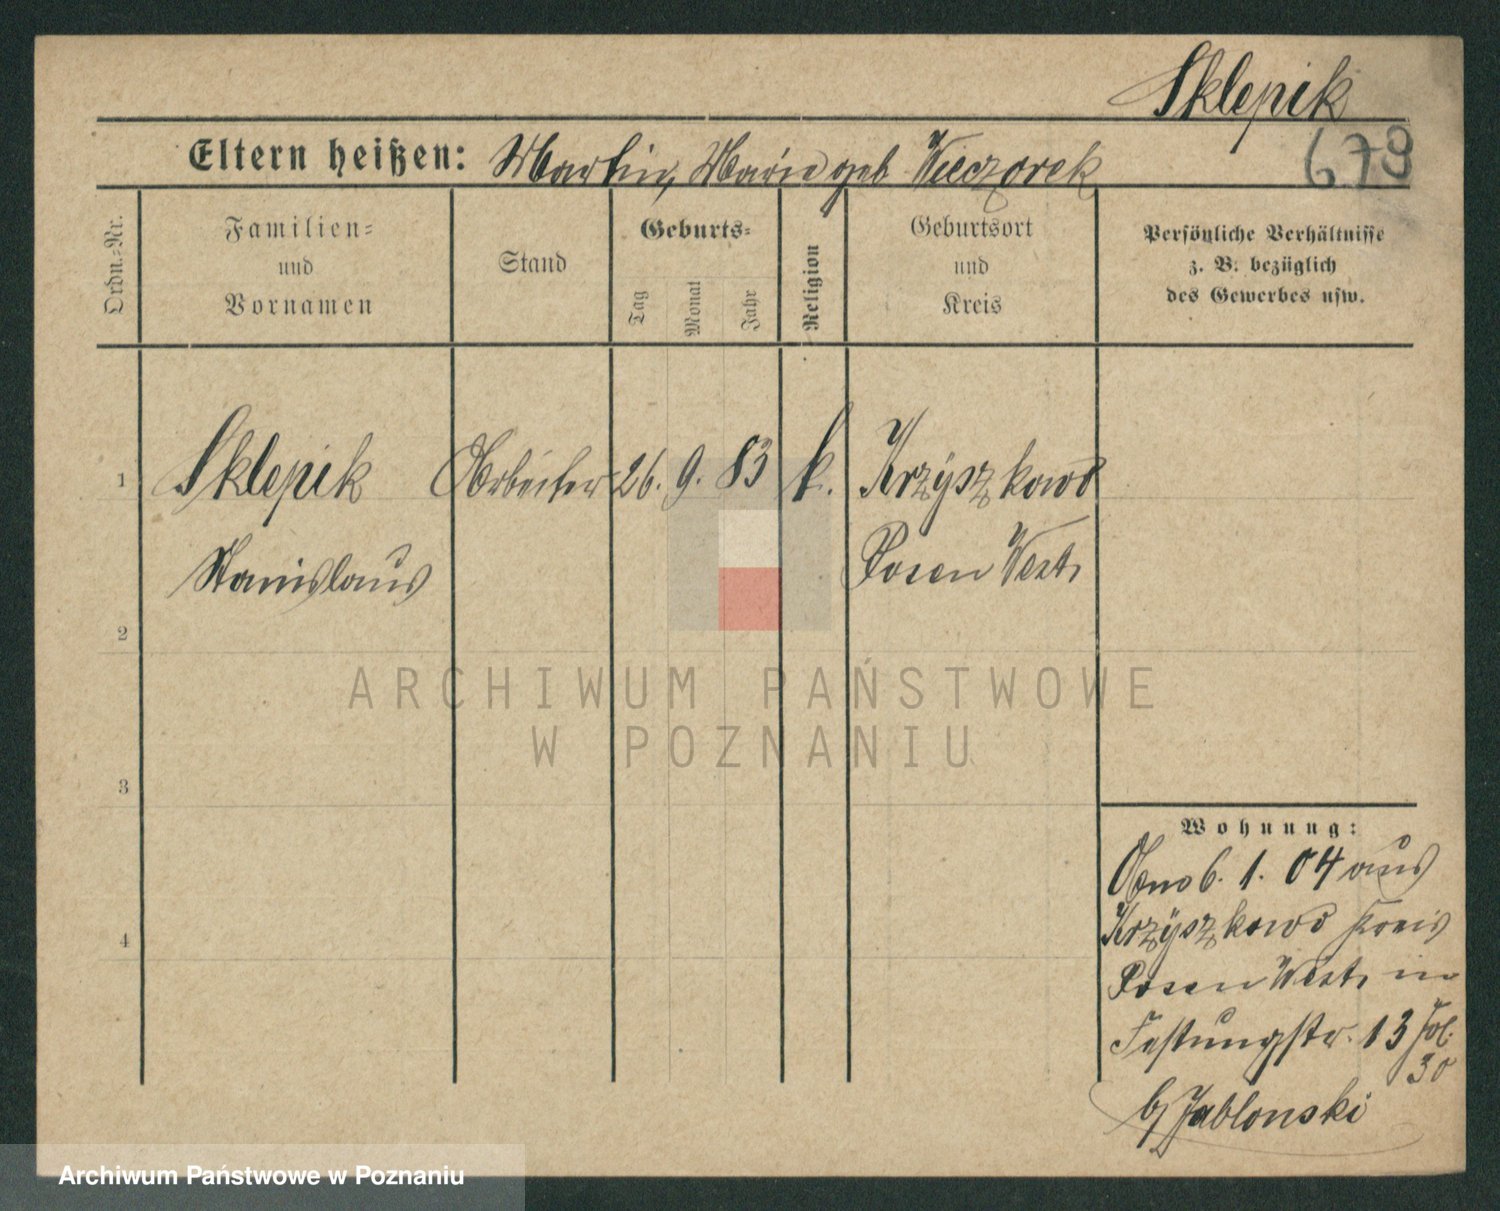 Sklepik
679
Eltern heißen: Martin, Marie geb Wieczorek
Ordn.-Nr.
Familien-
und
Vornamen
Stand
Geburts-
Tag
Monat
Jahr
Religion
Geburtsort
und
Kreis
Persönliche Verhältnisse
z. B. bezüglich
des Gewerbes usw.
1
Sklepik Arbeiter 26. 9. 83 k. Krzyszkowo
Stanislaus Posen West,
2
3
4
ARCHIWUM PAŃSTWOWE
W POZNANIU
Wohnung:
6. 1. 04 aus
Krzyszkowo Kreis
Posen West, in
Festungstr. 13 Fol.
30
b/ Jablonski
Archiwum Państwowe w Poznaniu